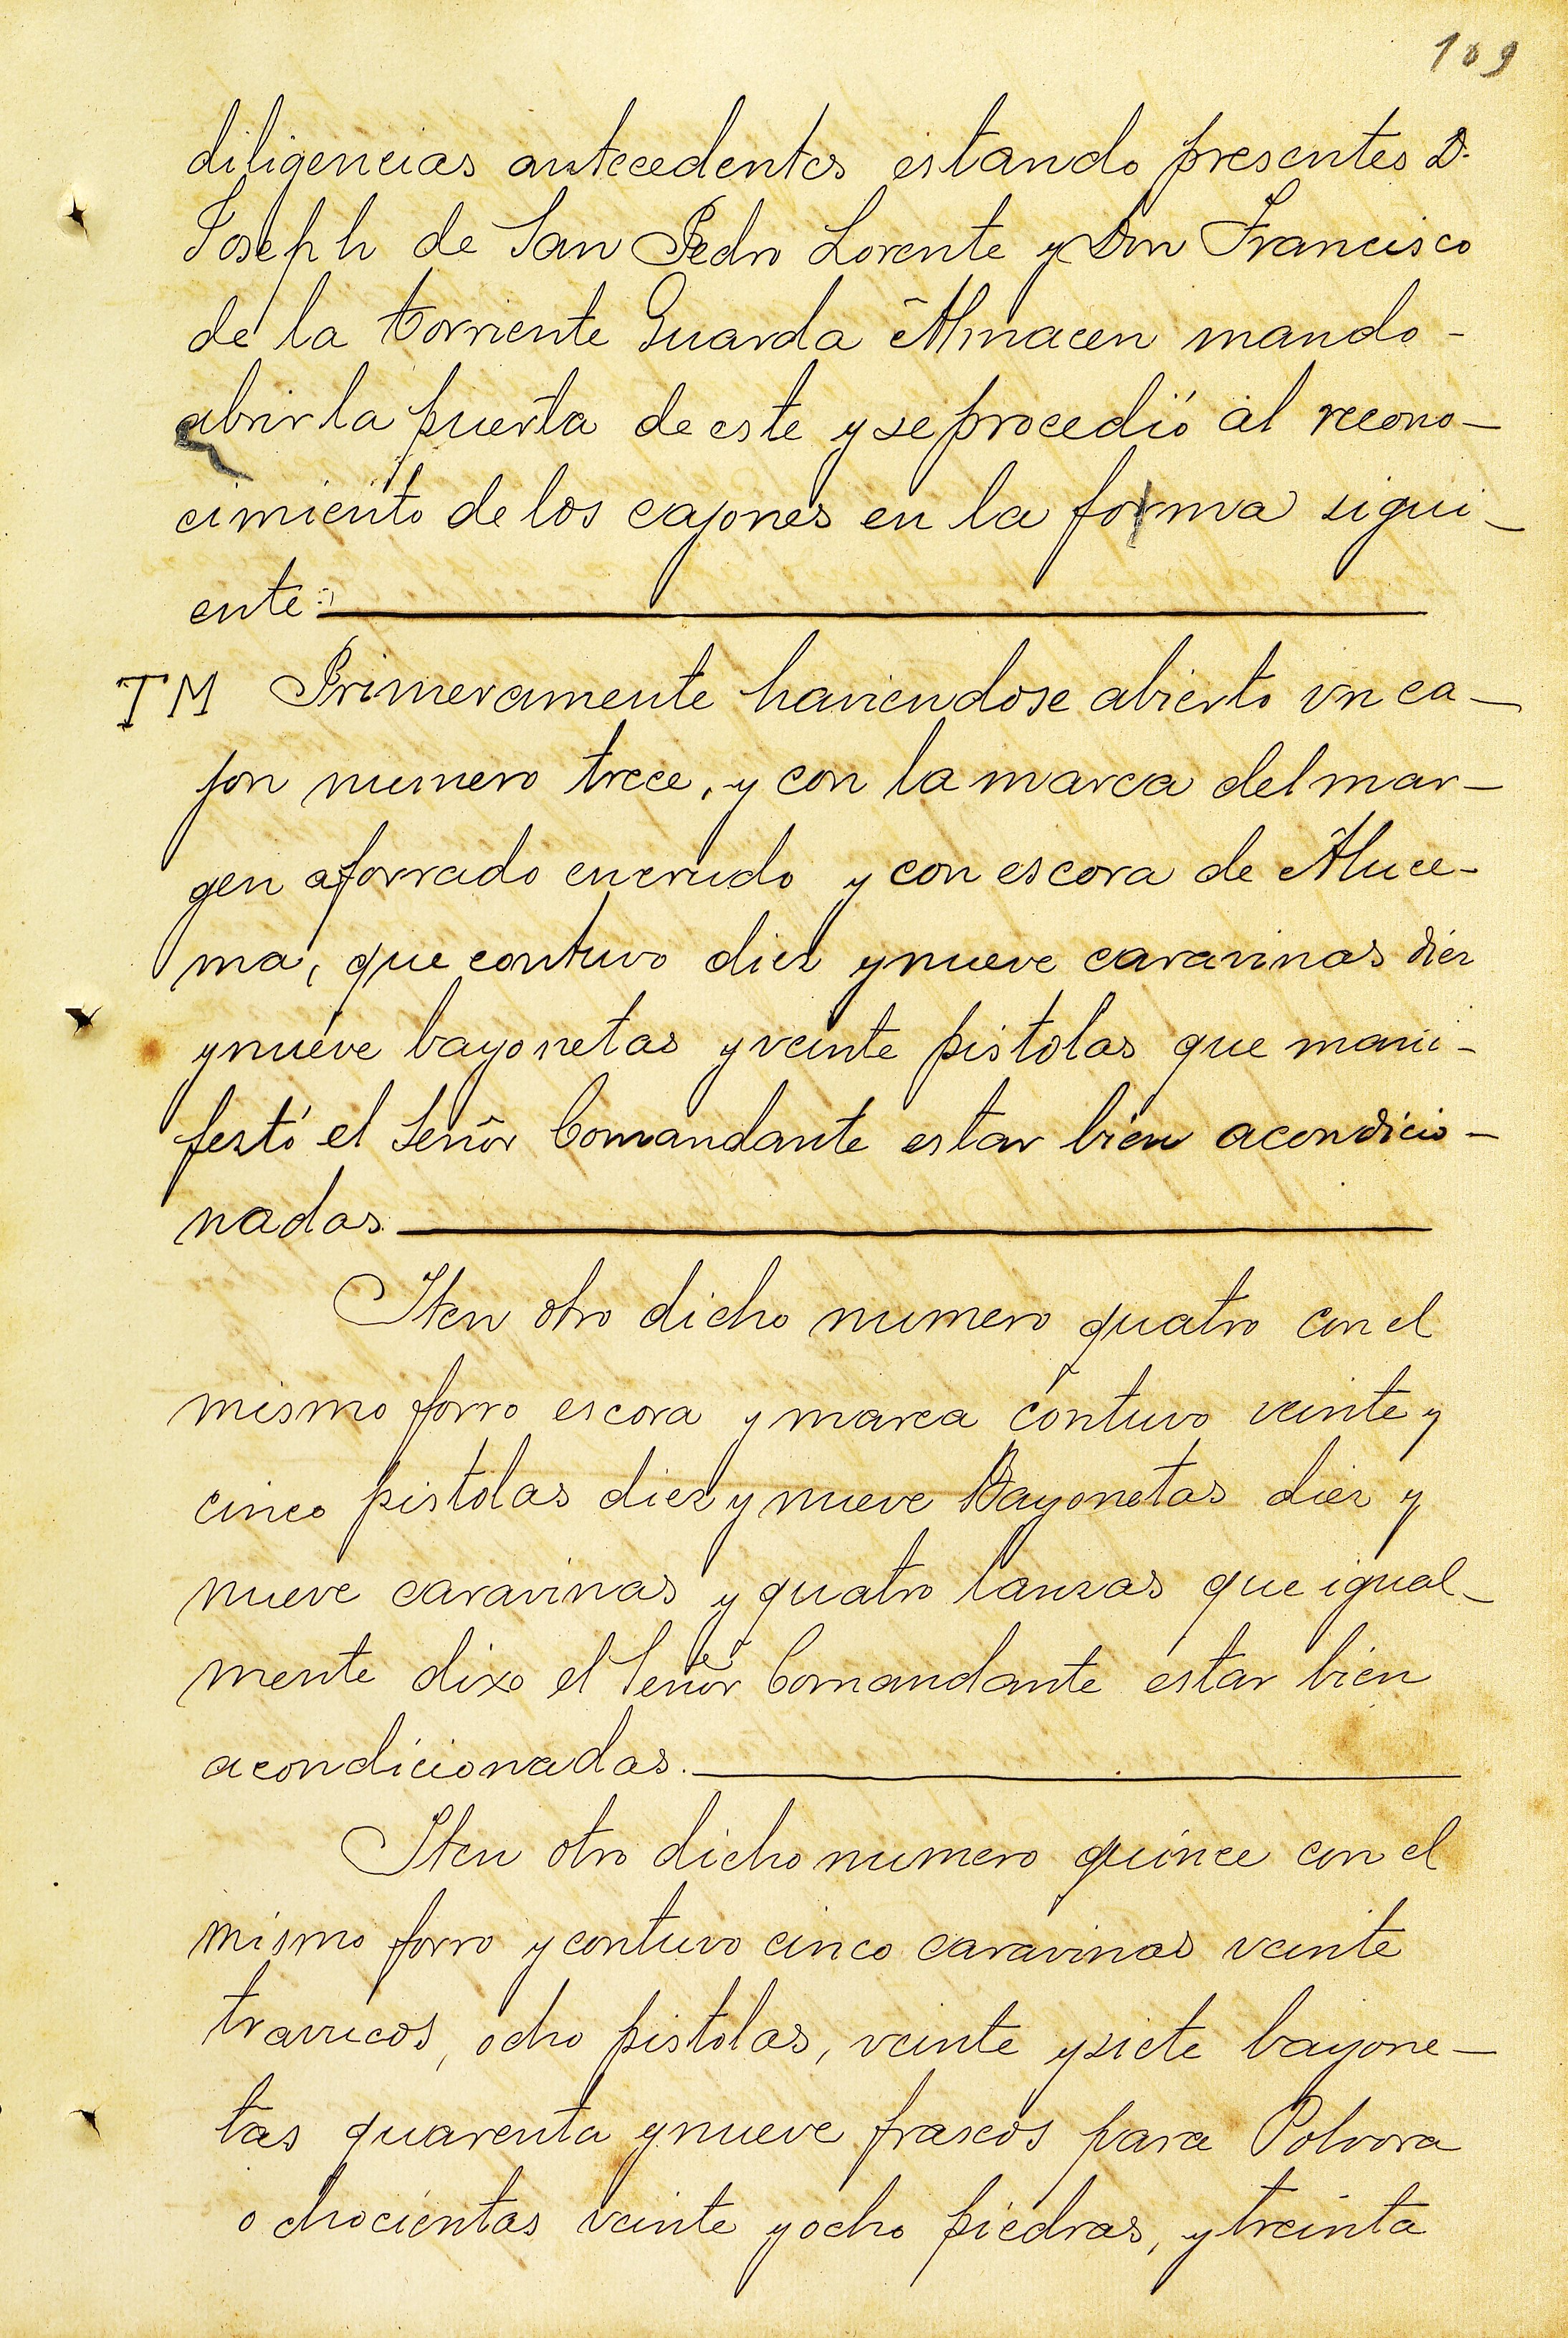 109
diligencias antecedentes estando presentes D.
Joseph de San Pedro Lorente y Don Francisco
de la torriente Guarda Almacen mando-
abrir la puerta de este y se procedió al recono-
cimiento de los cajones en la forma sigui-
ente:
TM Primeramente haviendose abierto vn ca-
jon numero trece, y con la marca del mar-
gen aforrado encrudo y con escora de Aluce-
ma, que contuvo diez ynueve caravinas diez
ynueve bayonetas yveinte pistolas que mani-
festó el Señor Comandante estar bien acondicio-
nadas.
Iten otro dicho numero quatro con el
mismo forro escora y marca contuvo veinte y
cinco pistolas diez y nueve Bayonetas diez y
nueve caravinas y quatro lanzas que igual-
mente dixo el Señor Comandante estar bien
acondicionadas.
Iten otro dicho numero quince con el
mismo forro y contuvo cinco caravinas veinte
travucos, ocho pistolas, veinte ysiete bayone-
tas quarenta ynueve frascos para Polvora
ochocientas veinte yocho piedras, ytreinta